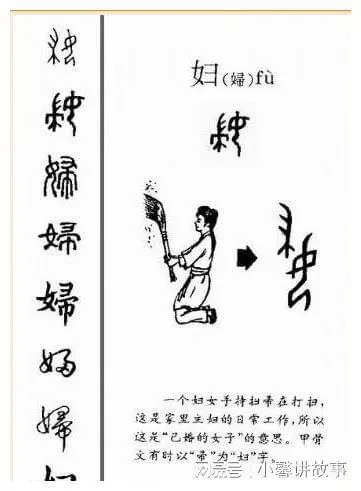 妇(婦)fù
一个妇女手持扫帚在打扫,
这是家里主妇的日常工作,所以
这是“已婚的女子”的意思。甲骨
文有时以“帚”为“妇”字。
搜狐号@小馨讲故事